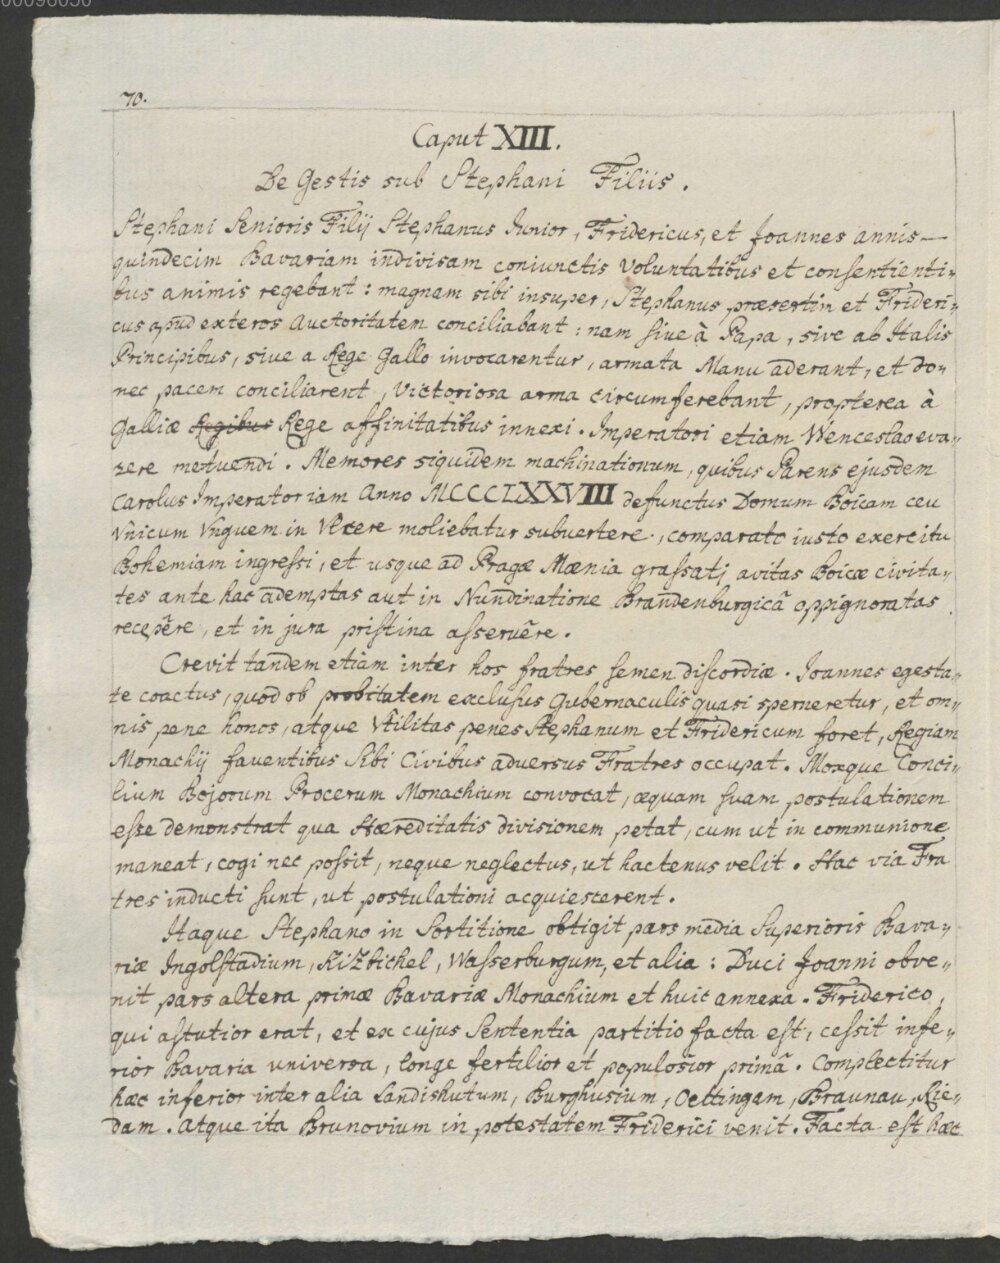 00096050
70.
Caput XIII.
De Gestis sub Stephani Filiis.
Stephani Senioris Filij Stephanus Junior, Fridericus, et Joannes annis
quindecim Bavariam indivisam coniunctis voluntatibus et consentienti-
bus animis regebant: magnam sibi insuper, Stephanus præsertim et Frideri-
cus apud exteros Auctoritatem conciliabant: nam sive à Papa, sive ab Italis
Principibus, sive a Rege Gallo invocarentur, armata Manu aderant, et do-
nec pacem conciliarent, Victoriosa arma circumferebant, propterea à
Galliæ Regibus Rege affinitatibus innexi. Imperatori etiam Wenceslao eva-
sere metuendi. Memores siquidem machinationum, quibus Parens ejusdem
Carolus Imperator iam Anno MCCCLXXVIII defunctus Domum Boicam ceu
Vnicum Vnguem in Vlcere moliebatur subvertere, comparato iusto exercitu
Bohemiam ingressi, et usque ad Pragæ Mœnia grassati avitas Boicæ civita-
tes ante hac ademptas aut in Nundinatione Brandenburgicâ oppignoratas
recepêre, et in jura pristina asseruêre.
Crevit tandem etiam inter hos fratres semen discordiæ. Joannes egesta-
te coactus, quod ob probitatem exclusus Gubernaculis quasi sperneretur, et om-
nis pene honos, atque Vtilitas penes Stephanum et Fridericum foret, Regiam
Monachij faventibus Sibi Civibus adversus Fratres occupat. Moxque Conci-
lium Bojorum Procerum Monachium convocat, æquam suam postulationem
esse demonstrat qua Hæreditatis divisionem petat, cum ut in communione
maneat, cogi nec possit, neque neglectus, ut hactenus velit. Hac via Fra
tres inducti sunt, ut postulationi acquiescarent.
Itaque Stephano in Sortitione obtigit pars media Superioris Bava-
riæ Ingolstadium, Kizbichel, Wasserburgum, et alia: Duci Joanni obve-
nit pars altera primæ Bavariæ Monachium et huic annexa. Friderico,
qui astutior erat, et ex cujus Sententia partitio facta est, cessit infe-
rior Bavaria universa, longe fertilior et populosior primâ. Complectitur
hæc inferior inter alia Landishutum, Burghusium, Oettingam, Braunau, Rie-
dam. Atque ita Brunovium in potestatem Friderici venit. Facta est hæc